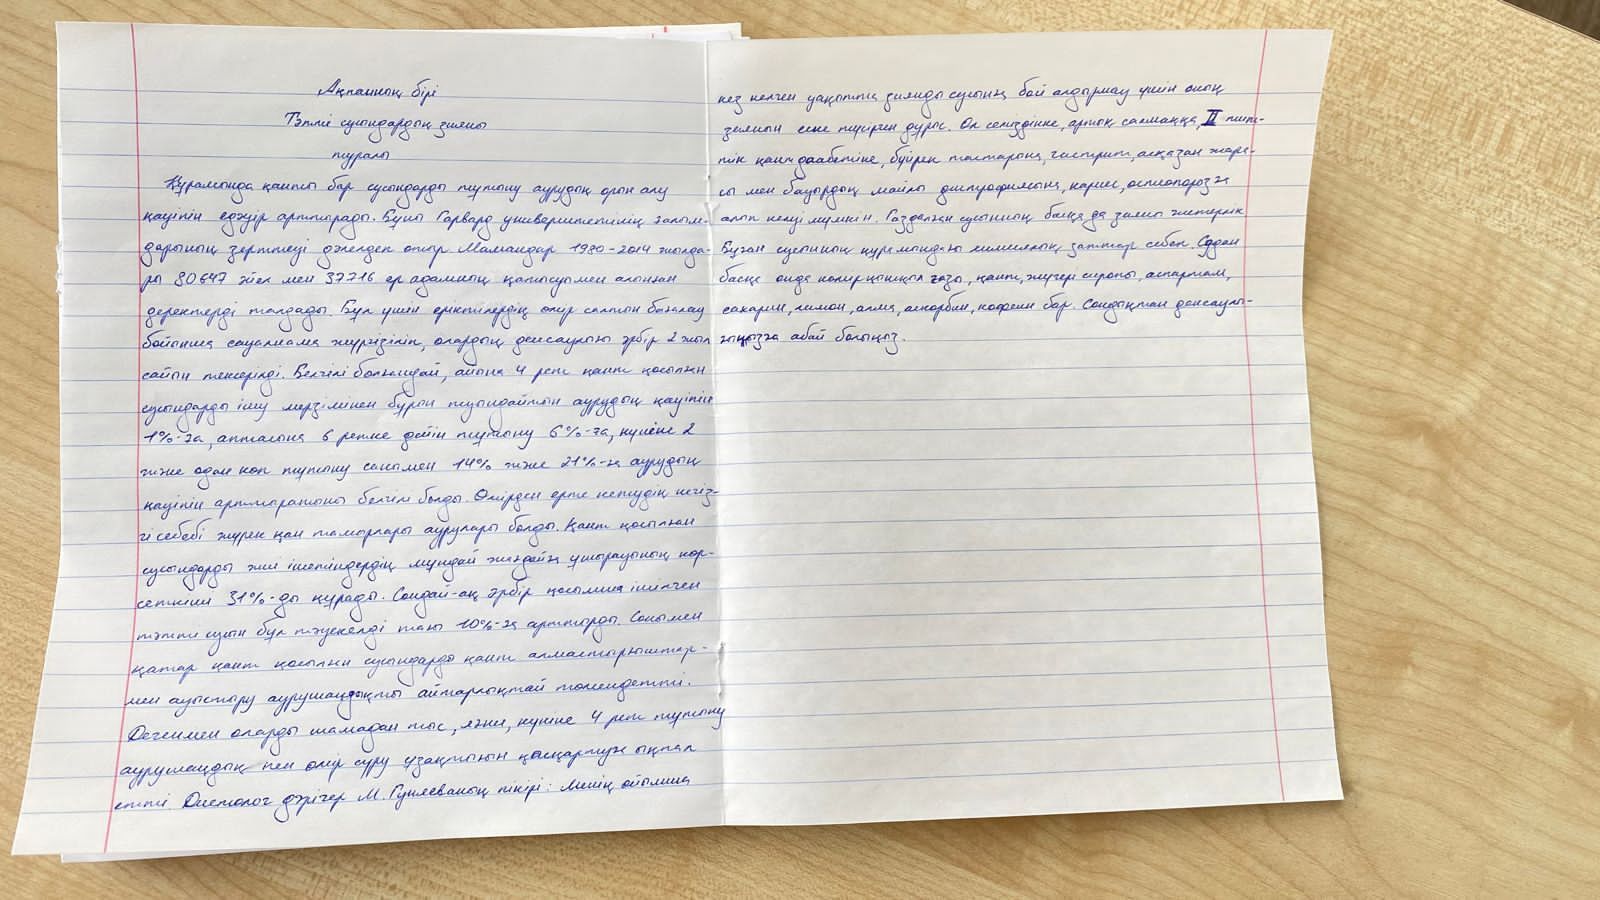 Ақпанның бірі
Тәтті сусындардың зияны
туралы
Құрамында қанты бар сусындарды тұтыну аурудың орын алу
қаупін едәуір арттырады. Бұны Гарвард университетінің ғалым-
дарының зерттеуі дәлелден отыр Мамандар 1980-2014 жылда-
ры 80647 әйел мен 37716 ер адамның қатысуымен алынған
деректерді талдады. Бұл үшін еріктілердің өмір салтын бағалау
бойынша сауалнама жүргізіліп, олардың денсаулығы әрбір 2 жыл
сайын тексерілді. Белгілі болғандай, айына 4 рет қант қосылған
сусындарды ішу мерзімінен бұрын туындайтын аурудың қаупін
1%-ға, аптасына 6 ретке дейін тұтыну 6%-ға, күніне 2
және одан көп тұтыну санымен 14% және 21%-ға аурудың
қаупін арттыратыны белгілі болды. Өмірден ерте кетудің негіз-
гі себебі жүрек қан тамырлары аурулары болды. Қант қосылған
сусындарды жиі ішетіндердің мұндай жағдайға ұшырауының көр-
сеткіші 31%-ды құрады. Сондай-ақ әрбір қосымша ішілген
тәтті сусын бұл тәуекелді тағы 10%-ға арттырды. Сонымен
қатар қант қосылған сусындарды қант алмастырғыштар-
мен ауыстыру аурушаңдықты айтарлықтай төмендетті.
Дегенмен оларды шамадан тыс, яғни, күніне 4 рет тұтыну
аурушаңдық пен өмір сүру ұзақтығын қысқартуға ықпал
етті. Диетолог дәрігер М. Гуляеваның пікірі: Менің ойымша
кез келген уақытта зиянды сусынға бой алдырмау үшін оның
зиянын еске түсірген дұрыс. Ол семіздікке, артық салмаққа, II тип-
тік қант диабетіне, бүйрек тастарына, гастрит, асқазан жара-
сы мен бауырдың майлы дистрофиясына, кариес, остеопорозға
алып келуі мүмкін. Газдалған сусынның басқа да зияны жетерлік
Бұған сусынның құрамындағы химиялық заттар себеп. Содан
басқа онда көмірқышқыл газы, қант, жүгері сиропы, аспартам,
сахарин, лимон, алма, аскорбин, кофеин бар. Сондықтан денсаулы-
ғыңызға абай болыңыз.